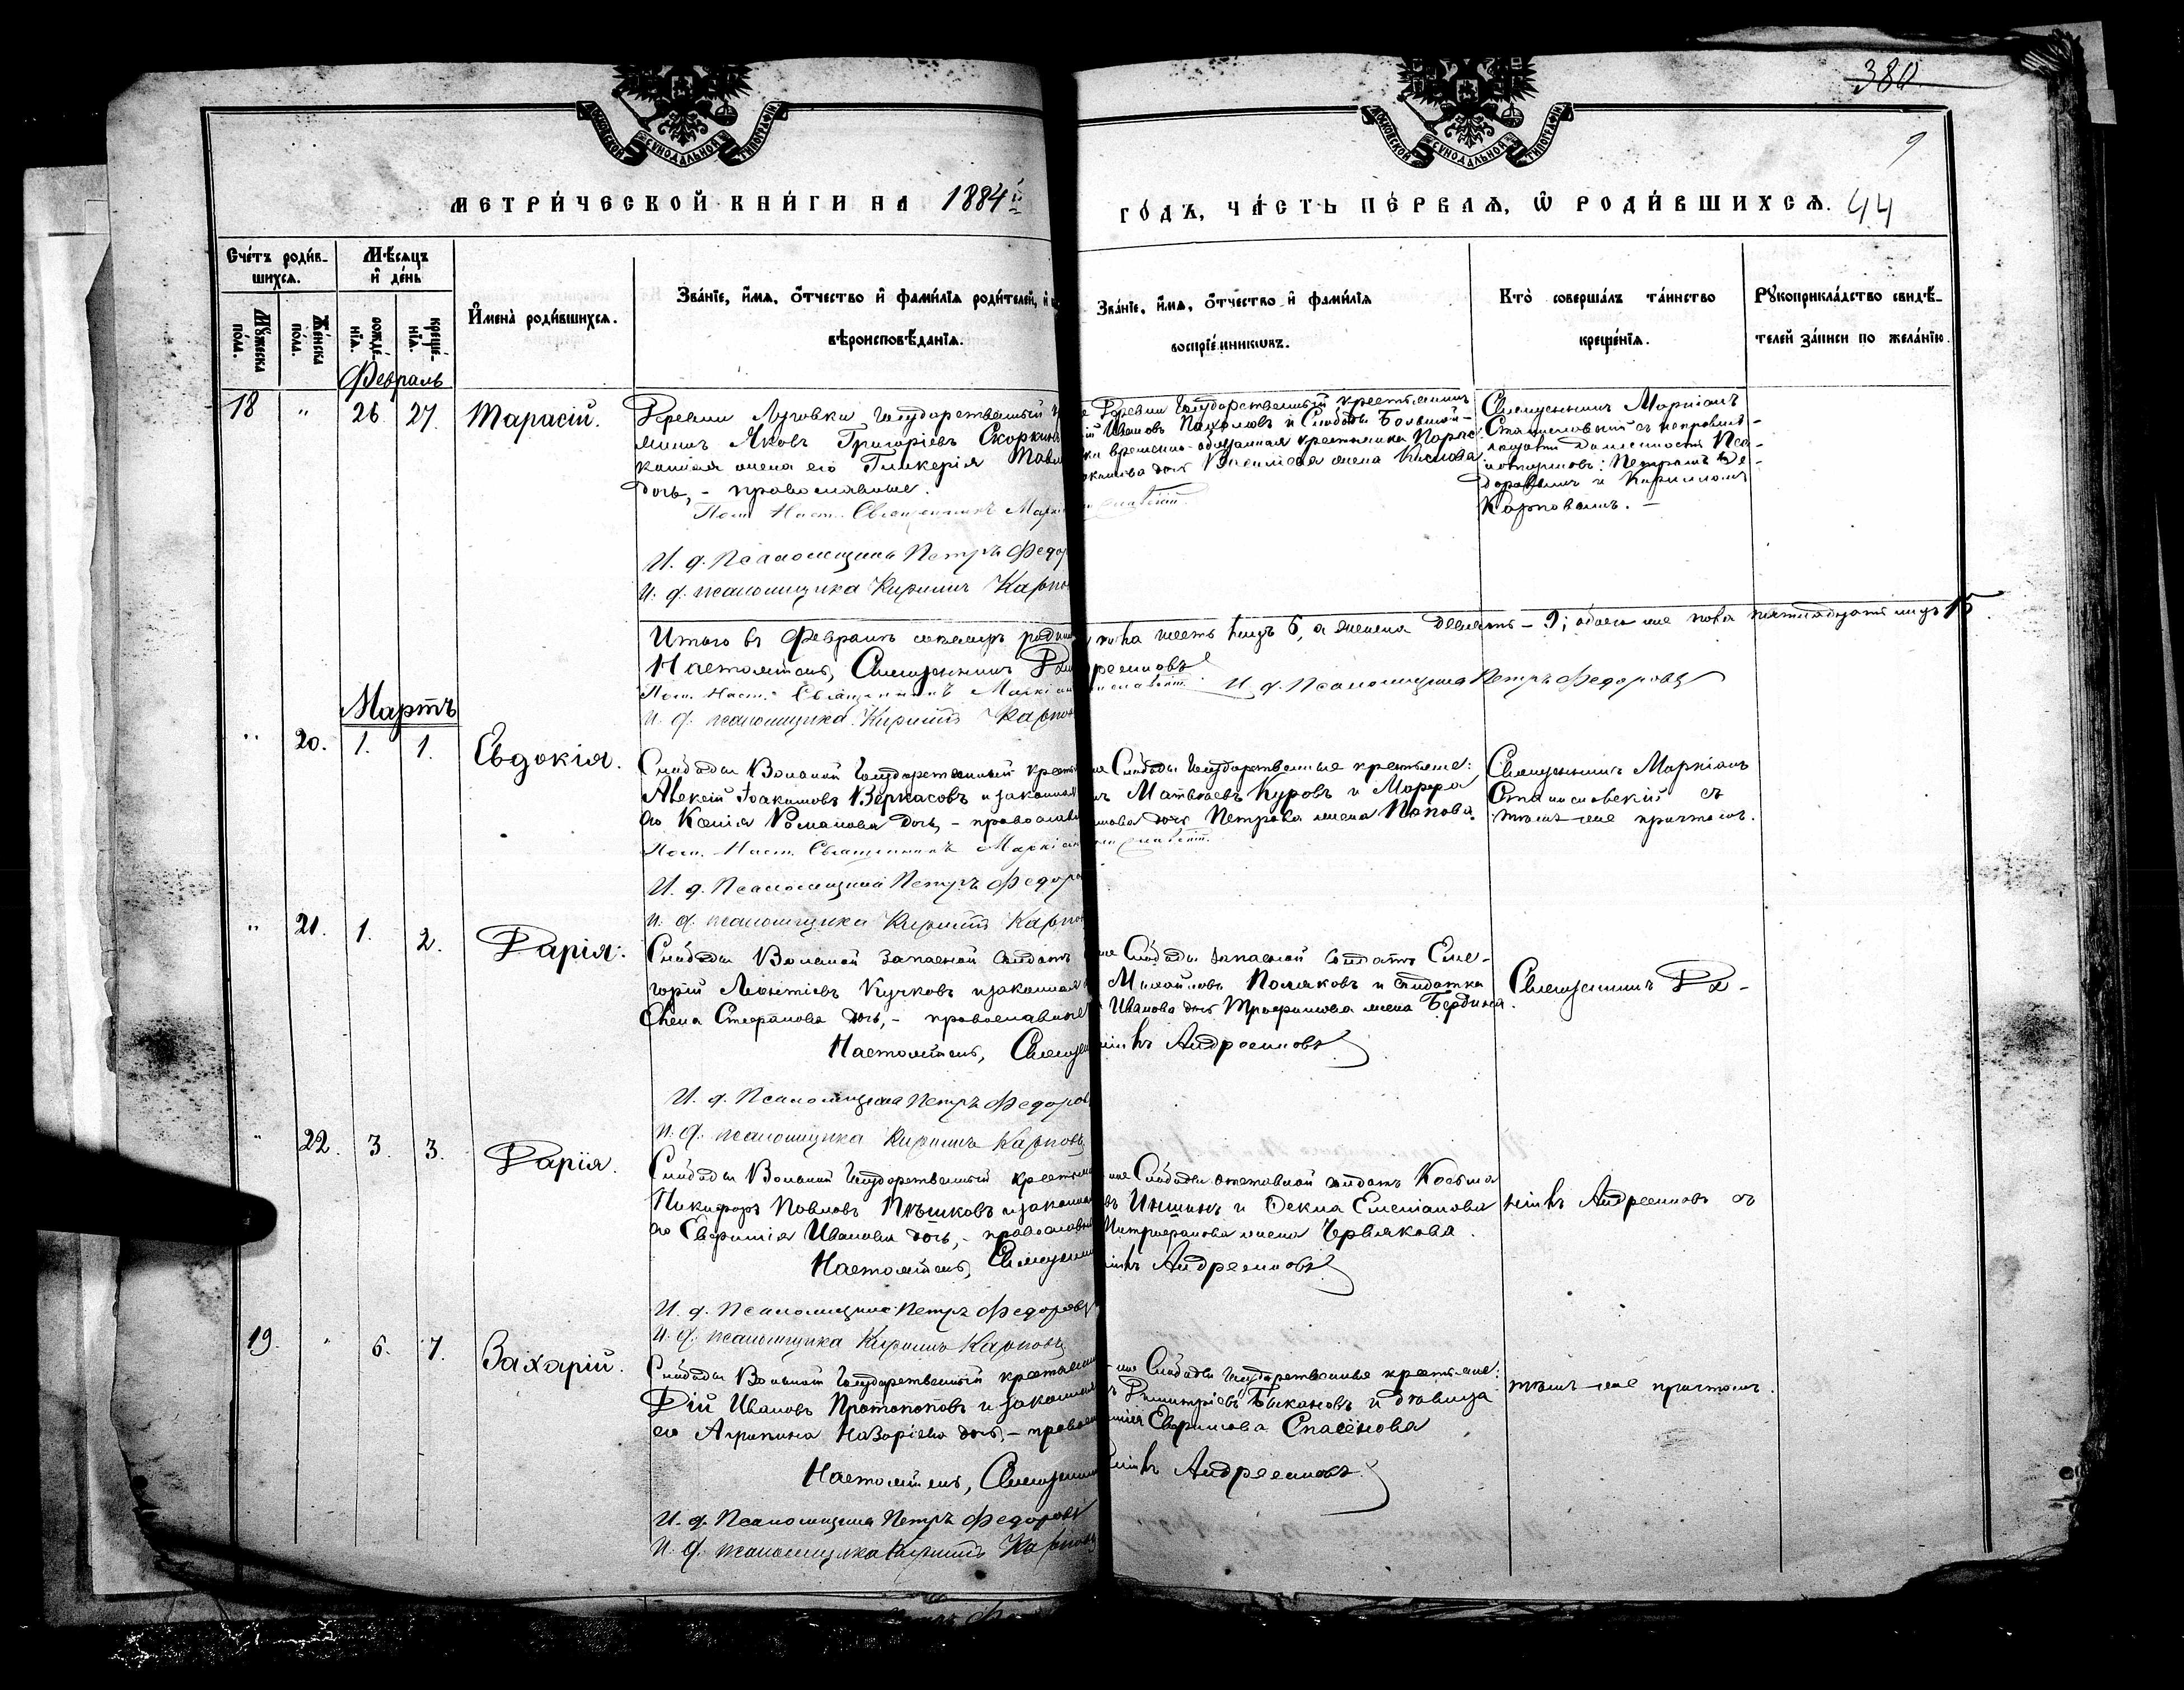 380
9
МОСКОВСКОЙ СѴНОДАЛЬНОЙ ТИПОГРАФІИ
МОСКОВСКОЙ СѴНОДАЛЬНОЙ ТИПОГРАФІИ
МЕТРИ́ЧЕСКОЙ КНИ́ГИ НА 1884й
ГО́ДЪ, ЧА́СТЬ ПЕ́РВАЯ, Ѡ РОДИ́ВШИХСЯ. 44
Сче́тъ роди́в-
шихся.
Мѣ́сяцъ
и҆ де́нь
Му́жеска по́ла.
Же́нска по́ла.
рожде́нїя.
креще́нїя.
И҆мена̀ роди́вшихся.
Зва́нїе, и҆́мя, ѻ҆́тчество и҆ фами́лїя роди́телей, и҆
вѣроисповѣ́данїя.
Зва́нїе, и҆́мя, ѻ҆́тчество и҆ фами́лїя
воспрїе́мникωвъ.
Кто̀ соверша́лъ та́инство
креще́нїя.
Рꙋкоприкла́дство свидѣ́-
телей за́писи по жела́нїю.
Февраль
18 " 26 27. Тарасій.
Деревни Луговки Государственный
нинъ Яковъ Григоріевъ Скоркинъ
конная жена его Гликерія Павл
дочь, – православные.
Пом. Наст. Священникъ Маркі
И. д. Псаломщика Петръ Федор
И. д. псаломщика Кириллъ Карпо
Деревни Государственный крестьянинъ
Ивановъ и Слободы Большой-
временно-обязанная крестьянка
дочь жена Кислова
Священникъ Маркіанъ
Станиславскій съ исправля-
ющими должность Пса-
ломщиковъ: Петромъ Фе-
доровымъ и Кирилломъ
Карповымъ. –
Итого въ Февралѣ мѣсяцѣ роди
пола шесть 6, а женска девять – 9; обоего же пола пятнадцать 15
Настоятель, Священникъ Ди
Андреенковъ
Пом. Наст. Священникъ Маркіан
И. д. Псаломщика Петръ Федоровъ
И. д. псаломщика Кириллъ Карпов
Мартъ
" 20. 1. 1. Евдокія.
Слободы Вольной Государственный крестья
Алексій Іоакимовъ Веркасовъ и законная
его Ксенія Романова дочь, – православ
Пом. Наст. Священникъ Маркіан
И. д. Псаломщика Петръ Федоро
И. д. псаломщика Кириллъ Карпов
же Слободы Государственные крестьяне:
Матвѣевъ Куровъ и Марѳа
дочь Петрова жена Попова.
Священникъ Маркіанъ
Станиславскій съ
тѣмъ-же причтомъ.
" 21. 1. 2. Дарія.
Слободы Вольной Запасной Солдатъ
горій Леонтіевъ Кучковъ и законная
Елена Стефанова дочь, – православные
Настоятель, Священ
И. д. Псаломщика Петръ Федоров
И. д. псаломщика Кириллъ Карповъ
же Слободы запасной солдатъ Еме-
Михайловъ Поляковъ и солдатка
Иванова дочь Трофимова жена Бердина.
никъ Андреенковъ
Священникъ Ди-
" 22. 3. 3. Дарія.
Слободы Вольной Государственный крестьян
Никифоръ Павловъ Пѣшковъ и законная
его Евфимія Иванова дочь, – православн
Настоятель, Священни
И. д. Псаломщика Петръ Федоровъ
И. д. псаломщика Кириллъ Карповъ
же Слободы отставной солдатъ Косьма
и Ѳекла Емеліанова
Митрофанова жена Червякова.
никъ Андреенковъ
никъ Андреенковъ съ
19. " 6. 7. Захарій.
Слободы Вольной Государственный крестьянин
дій Ивановъ Протопоповъ и законная
его Агрипина Назаріева дочь, – правос
Настоятель, Священни
И. д. Псаломщика Петръ Федоровъ
И. д. псаломщика Кириллъ Карповъ
же Слободы Государственные крестьяне:
Димитріевъ Быкановъ и дѣвица
Евфимова Спасёнова
никъ Андреенковъ
тѣмъ-же причтомъ.